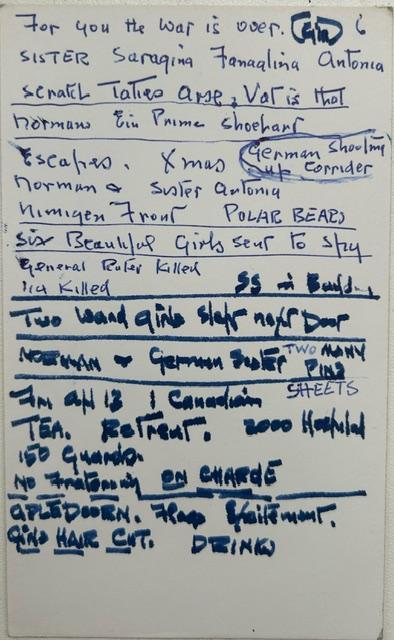 For you the War is over. (Gin) 6
SISTER Saragina Fanaglina Antonia
scratch Taties Arse, Vat is that
Normans Ein Prime Shoehart
Escapes. Xmas German Shouting
up Corrider
Norman & Sister Antonia
Nimigen Front POLAR BEARS
Six Beautiful Girls sent to spy
General Ruter Killed
Killed SS in Build
Two Land Girls slept next Door
NORMAN & German Sister TWO MANY
PINS
SHEETS
12 1 Canadian
TEA. Retreat. 2000 Hospital
150 Guards
No Fraternin ON CHARGE
APLEDOORN. Flags Exitement.
Girls HAIR CUT. DRINKS